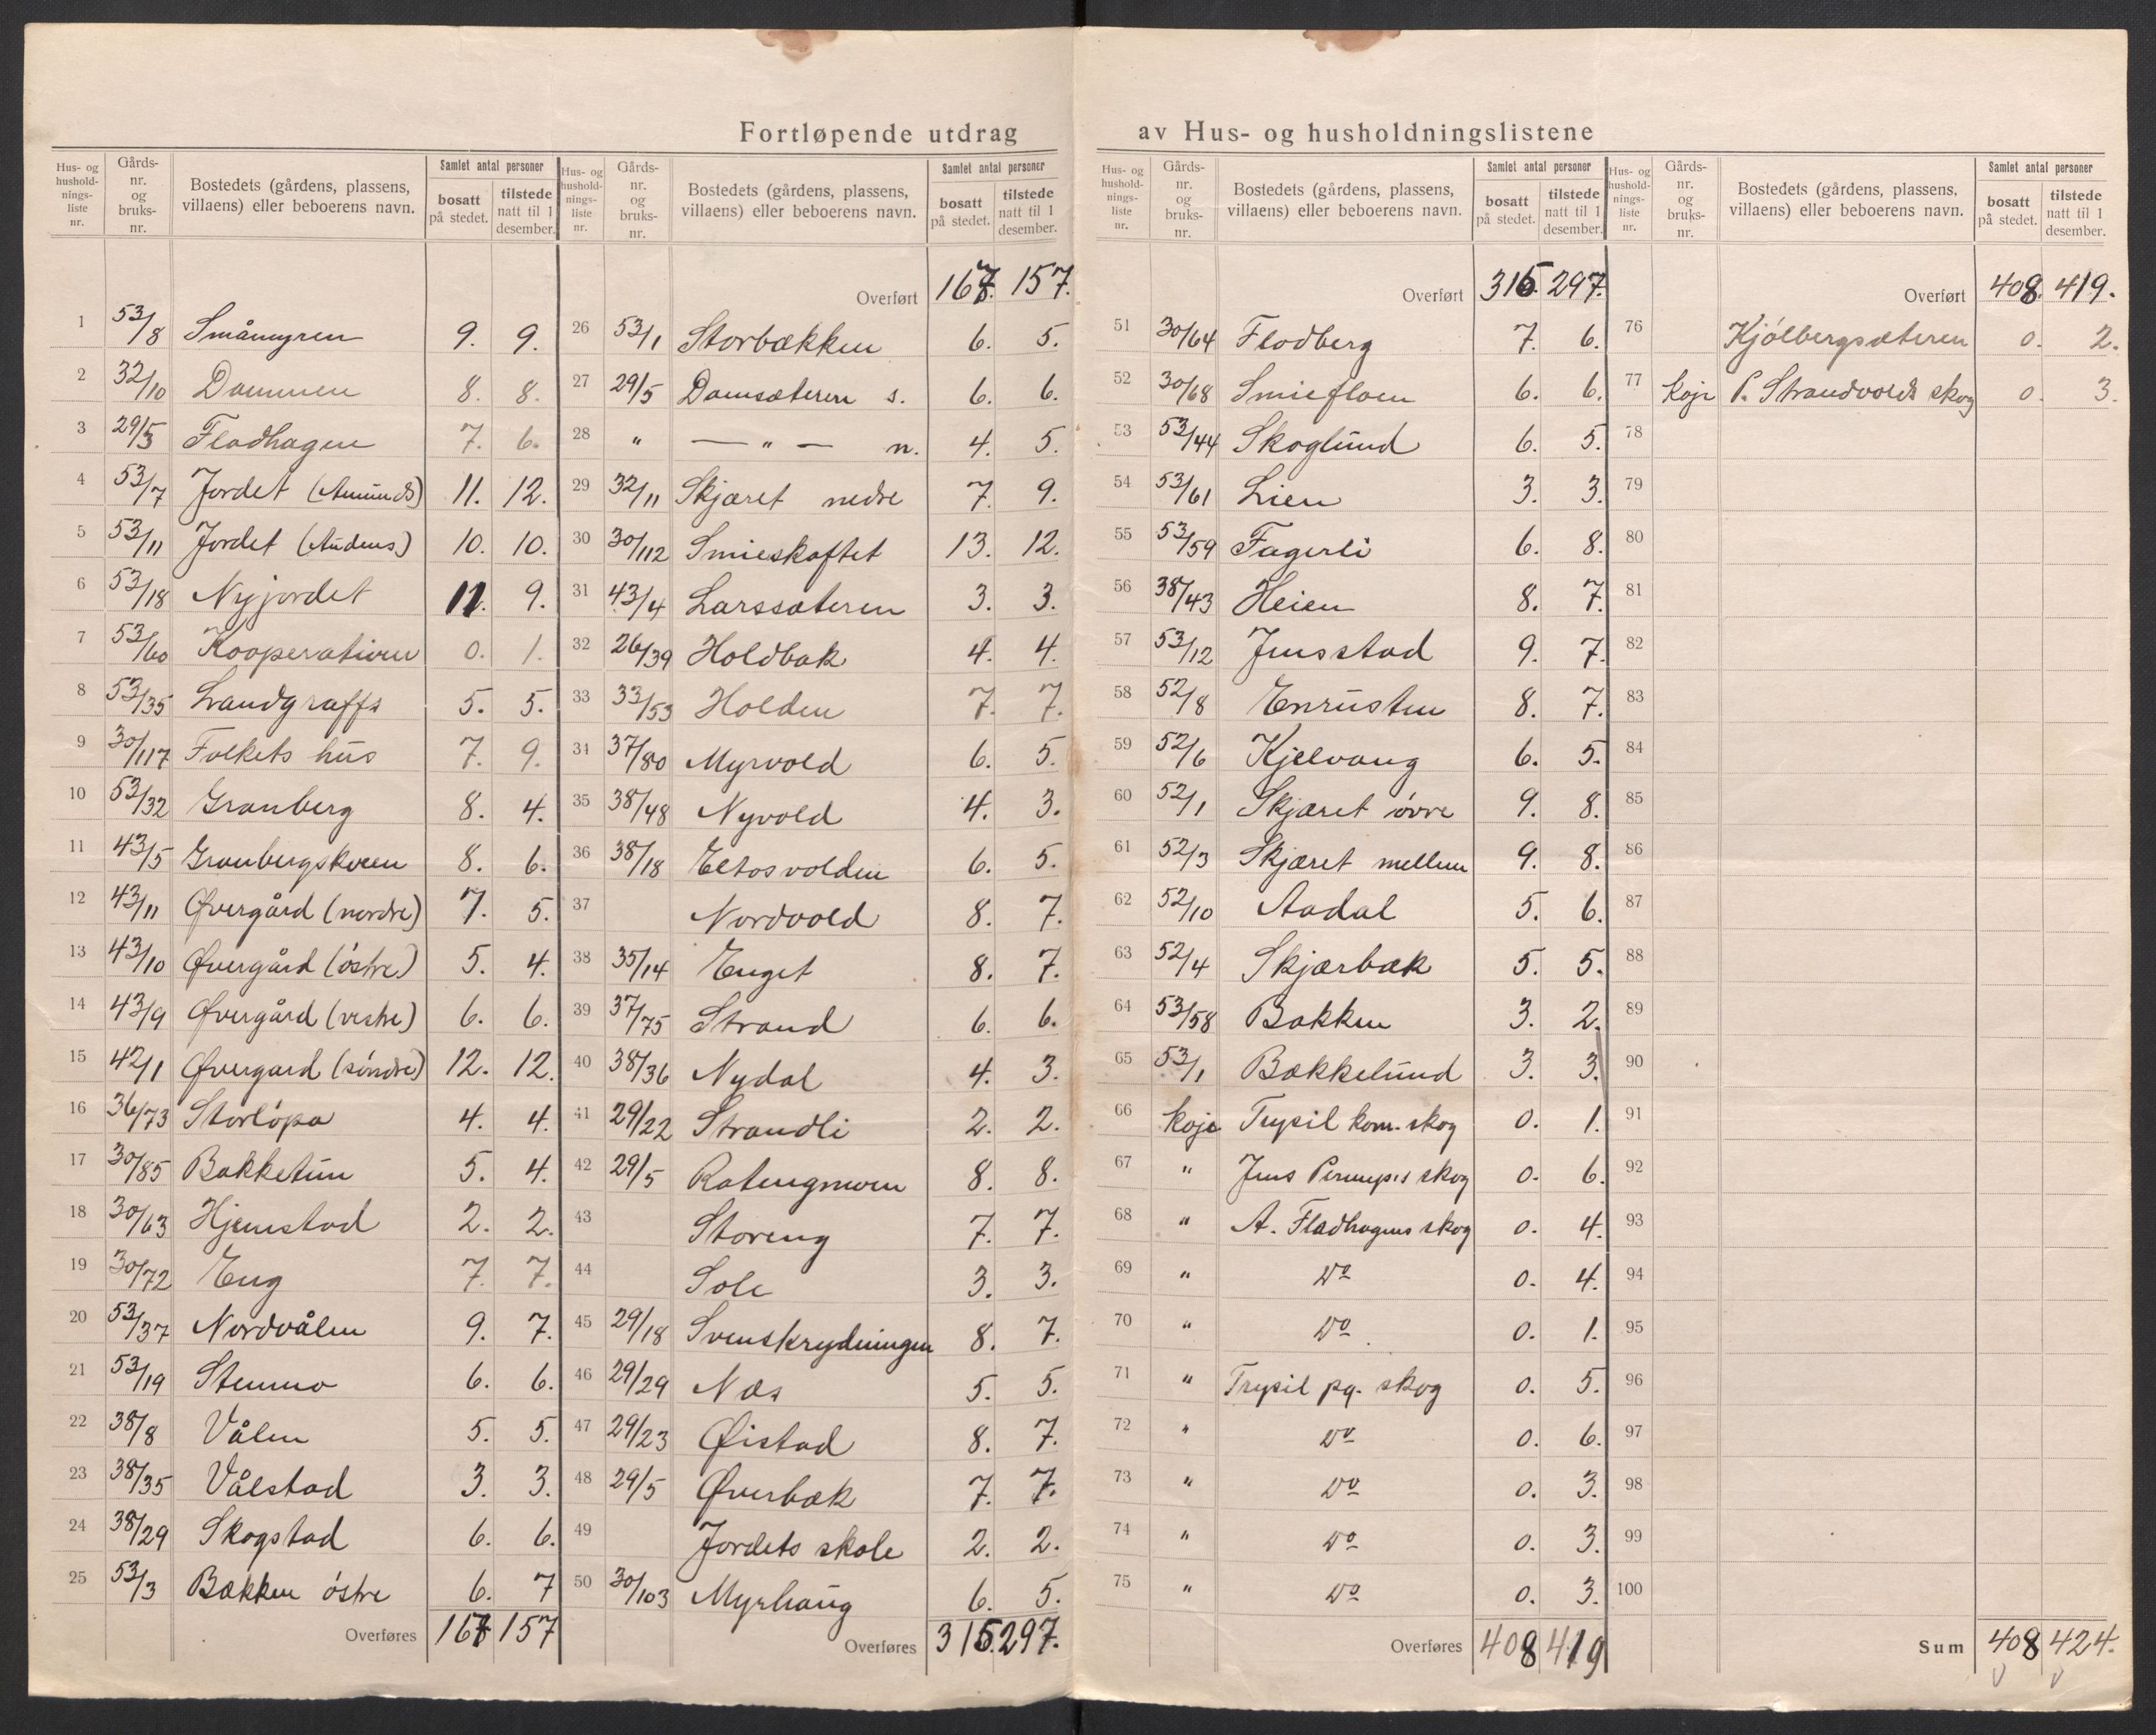 Fortløpende utdrag av Hus- og husholdningslistene
Hus- og hushold-nings-liste nr. | Gårds-nr. og bruks-nr. | Bostedets (gårdens, plassens, villaens) eller beboerens navn. | Samlet antal personer bosatt på stedet. | tilstede natt til 1 desember.
1 53/8 Småmyren 9. 9.
2 32/10 Dammen 8. 8.
3 29/3 Fladhagen 7. 6.
4 53/7 Jordet (Amunds) 11. 12.
5 53/11 Jordet (Audens) 10. 10.
6 53/18 Nyjordet 11. 9.
7 53/60 Kooperativen 0. 1.
8 53/35 Landgraffs 5. 5.
9 30/117 Folkets hus 7. 9.
10 53/32 Granberg 8. 4.
11 43/5 Granbergskveen 8. 6.
12 43/11 Øvergård (nordre) 7. 5.
13 43/10 Øvergård (östre) 5. 4.
14 43/9 Øvergård (vestre) 6. 6.
15 42/1 Øvergard (söndre) 12. 12.
16 36/73 Storlöpa 4. 4.
17 30/85 Bakketun 5. 4.
18 30/63 Hjemstad 2. 2.
19 30/72 Eng 7. 7.
20 53/37 Nordvålen 9. 7.
21 53/19 Stemmo 6. 6.
22 38/8 Vålen 5. 5.
23 38/35 Vålstad 3. 3.
24 38/29 Skogstad 6. 6.
25 53/3 Bækken östre 6. 7
Overføres 167 157
Hus- og hushold-nings-liste nr. | Gårds-nr. og bruks-nr. | Bostedets (gårdens, plassens, villaens) eller beboerens navn. | Samlet antal personer bosatt på stedet. | tilstede natt til 1 desember.
Overført 167. 157.
26 53/1 Storbækken 6. 5.
27 29/5 Damsæteren s. 6. 6.
28 " — " — n. 4. 5.
29 32/11 Skjæret nedre 7. 9.
30 30/112 Smieskaftet 13. 12.
31 43/4 Larssæteren 3. 3.
32 26/39 Holdbak 4. 4.
33 33/53 Holden 7. 7.
34 37/80 Myrvold 6. 5.
35 38/48 Nyvold 4. 3.
36 38/18 Eltosvolden 6. 5.
37 Nordvold 8. 7.
38 35/14 Enget 8. 7.
39 37/75 Strand 6. 6.
40 38/36 Nydal 4. 3.
41 29/22 Strandli 2. 2.
42 29/5 Ratengmoen 8. 8.
43 Storeng 7. 7.
44 Sole 3. 3.
45 29/18 Svenskrydningen 8. 7.
46 29/29 Næs 5. 5.
47 29/23 Øistad 8. 7.
48 29/5 Øverbæk 7. 7.
49 Jordets skole 2. 2.
50 30/103 Myrhaug 6. 5.
Overføres 315. 297.
Hus- og hushold-nings-liste nr. | Gårds-nr. og bruks-nr. | Bostedets (gårdens, plassens, villaens) eller beboerens navn. | Samlet antal personer bosatt på stedet. | tilstede natt til 1 desember.
Overført 315. 297.
51 30/64 Flodberg 7. 6.
52 30/68 Smiefloen 6. 6.
53 53/44 Skoglund 6. 5.
54 53/61 Lien 3. 3.
55 53/59 Fagerli 6. 8.
56 38/43 Heien 8. 7.
57 53/12 Jensstad 9. 7.
58 52/8 Enrusten 8. 7.
59 52/6 Kjelvang 6. 5.
60 52/1 Skjæret övre 9. 8.
61 52/3 Skjæret mellem 9. 8.
62 52/10 Aadal 5. 6.
63 52/4 Skjærbæk 5. 5.
64 53/58 Bakken 3. 2.
65 53/1 Bækkelund 3. 3.
66 Koje Trysil kom. skog 0. 1.
67 " Jens skog 0. 6.
68 " A. Fladhagens skog 0. 4.
69 " Do 0. 4.
70 " Do 0. 1.
71 " Trysil pg. skog 0. 5.
72 " Do 0. 6.
73 " Do 0. 3.
74 " Do 0. 3.
75 " Do 0. 3.
Overføres 408 419
Hus- og hushold-nings-liste nr. | Gårds-nr. og bruks-nr. | Bostedets (gårdens, plassens, villaens) eller beboerens navn. | Samlet antal personer bosatt på stedet. | tilstede natt til 1 desember.
Overført 408. 419.
76 Kjölbergsæteren 0. 2.
77 Koje P. Strandvolds skog 0. 3.
78
79
80
81
82
83
84
85
86
87
88
89
90
91
92
93
94
95
96
97
98
99
100
Sum 408 424.